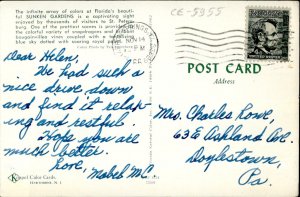 The infinite array of colors at Florida's beauti-
ful SUNKEN GARDENS is a captivating sight
enjoyed by the thousands of visitors to St. Peters-
burg. One of the prettiest scenes is provided by
the colorful variety of snapdragons and ribbon
bougainvillea vines coupled with a
blue sky dotted with soaring royal palms.
CE-5955
NOV 14
PM
Dear Helen,
We had such a
nice drive down
and find it relax-
ing and restful.
Hope you are
much better.
Love,
Mabel McC
POST CARD
Address
Mrs. Charles Lowe,
63 E Ashland Ave.
Doylestown,
Pa.
K
Koppel Color Cards
HAWTHORNE, N. J.